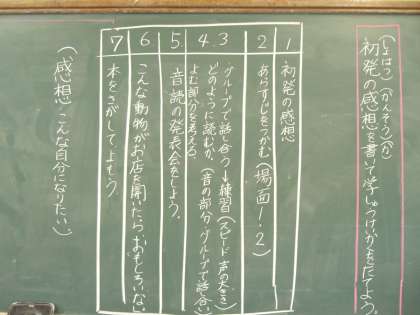 (しょはつ)(かんそう)(か)
初発の感想を書いて学しゅうけいかくをたてよう。
1 初発の感想
2 あらすじをつかむ(場面1・2)
3 グループで話し合う→練習(スピード声の大きさ)
4 どのように読むか、(音の部分、グループで話し合い)
よむ部分を考える、
5 音読の発表会をしよう。
6 こんな動物がお店を開いたら、おもしろいな
7 本をさがしてよもう。
(感想 こんな自分になりたい。)